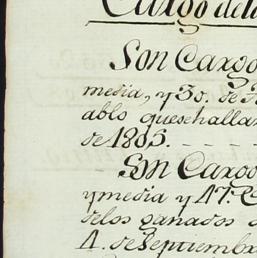 Cargo dela
Son Cargo
media, y 30. de
ablo quese halla
de 1805.
Son Cargo
y media y 47.
delos ganados
4. de Septiembre